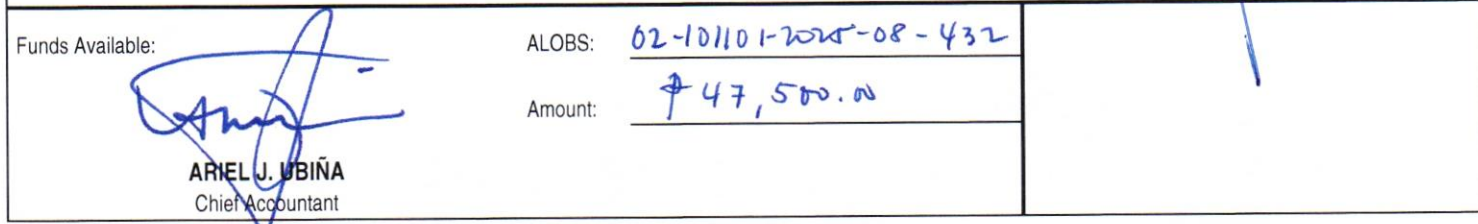 Funds Available:
ALOBS: 02-101101-2025-08-432
Amount: ₱47,500.00
ARIEL J. UBIÑA
Chief Accountant